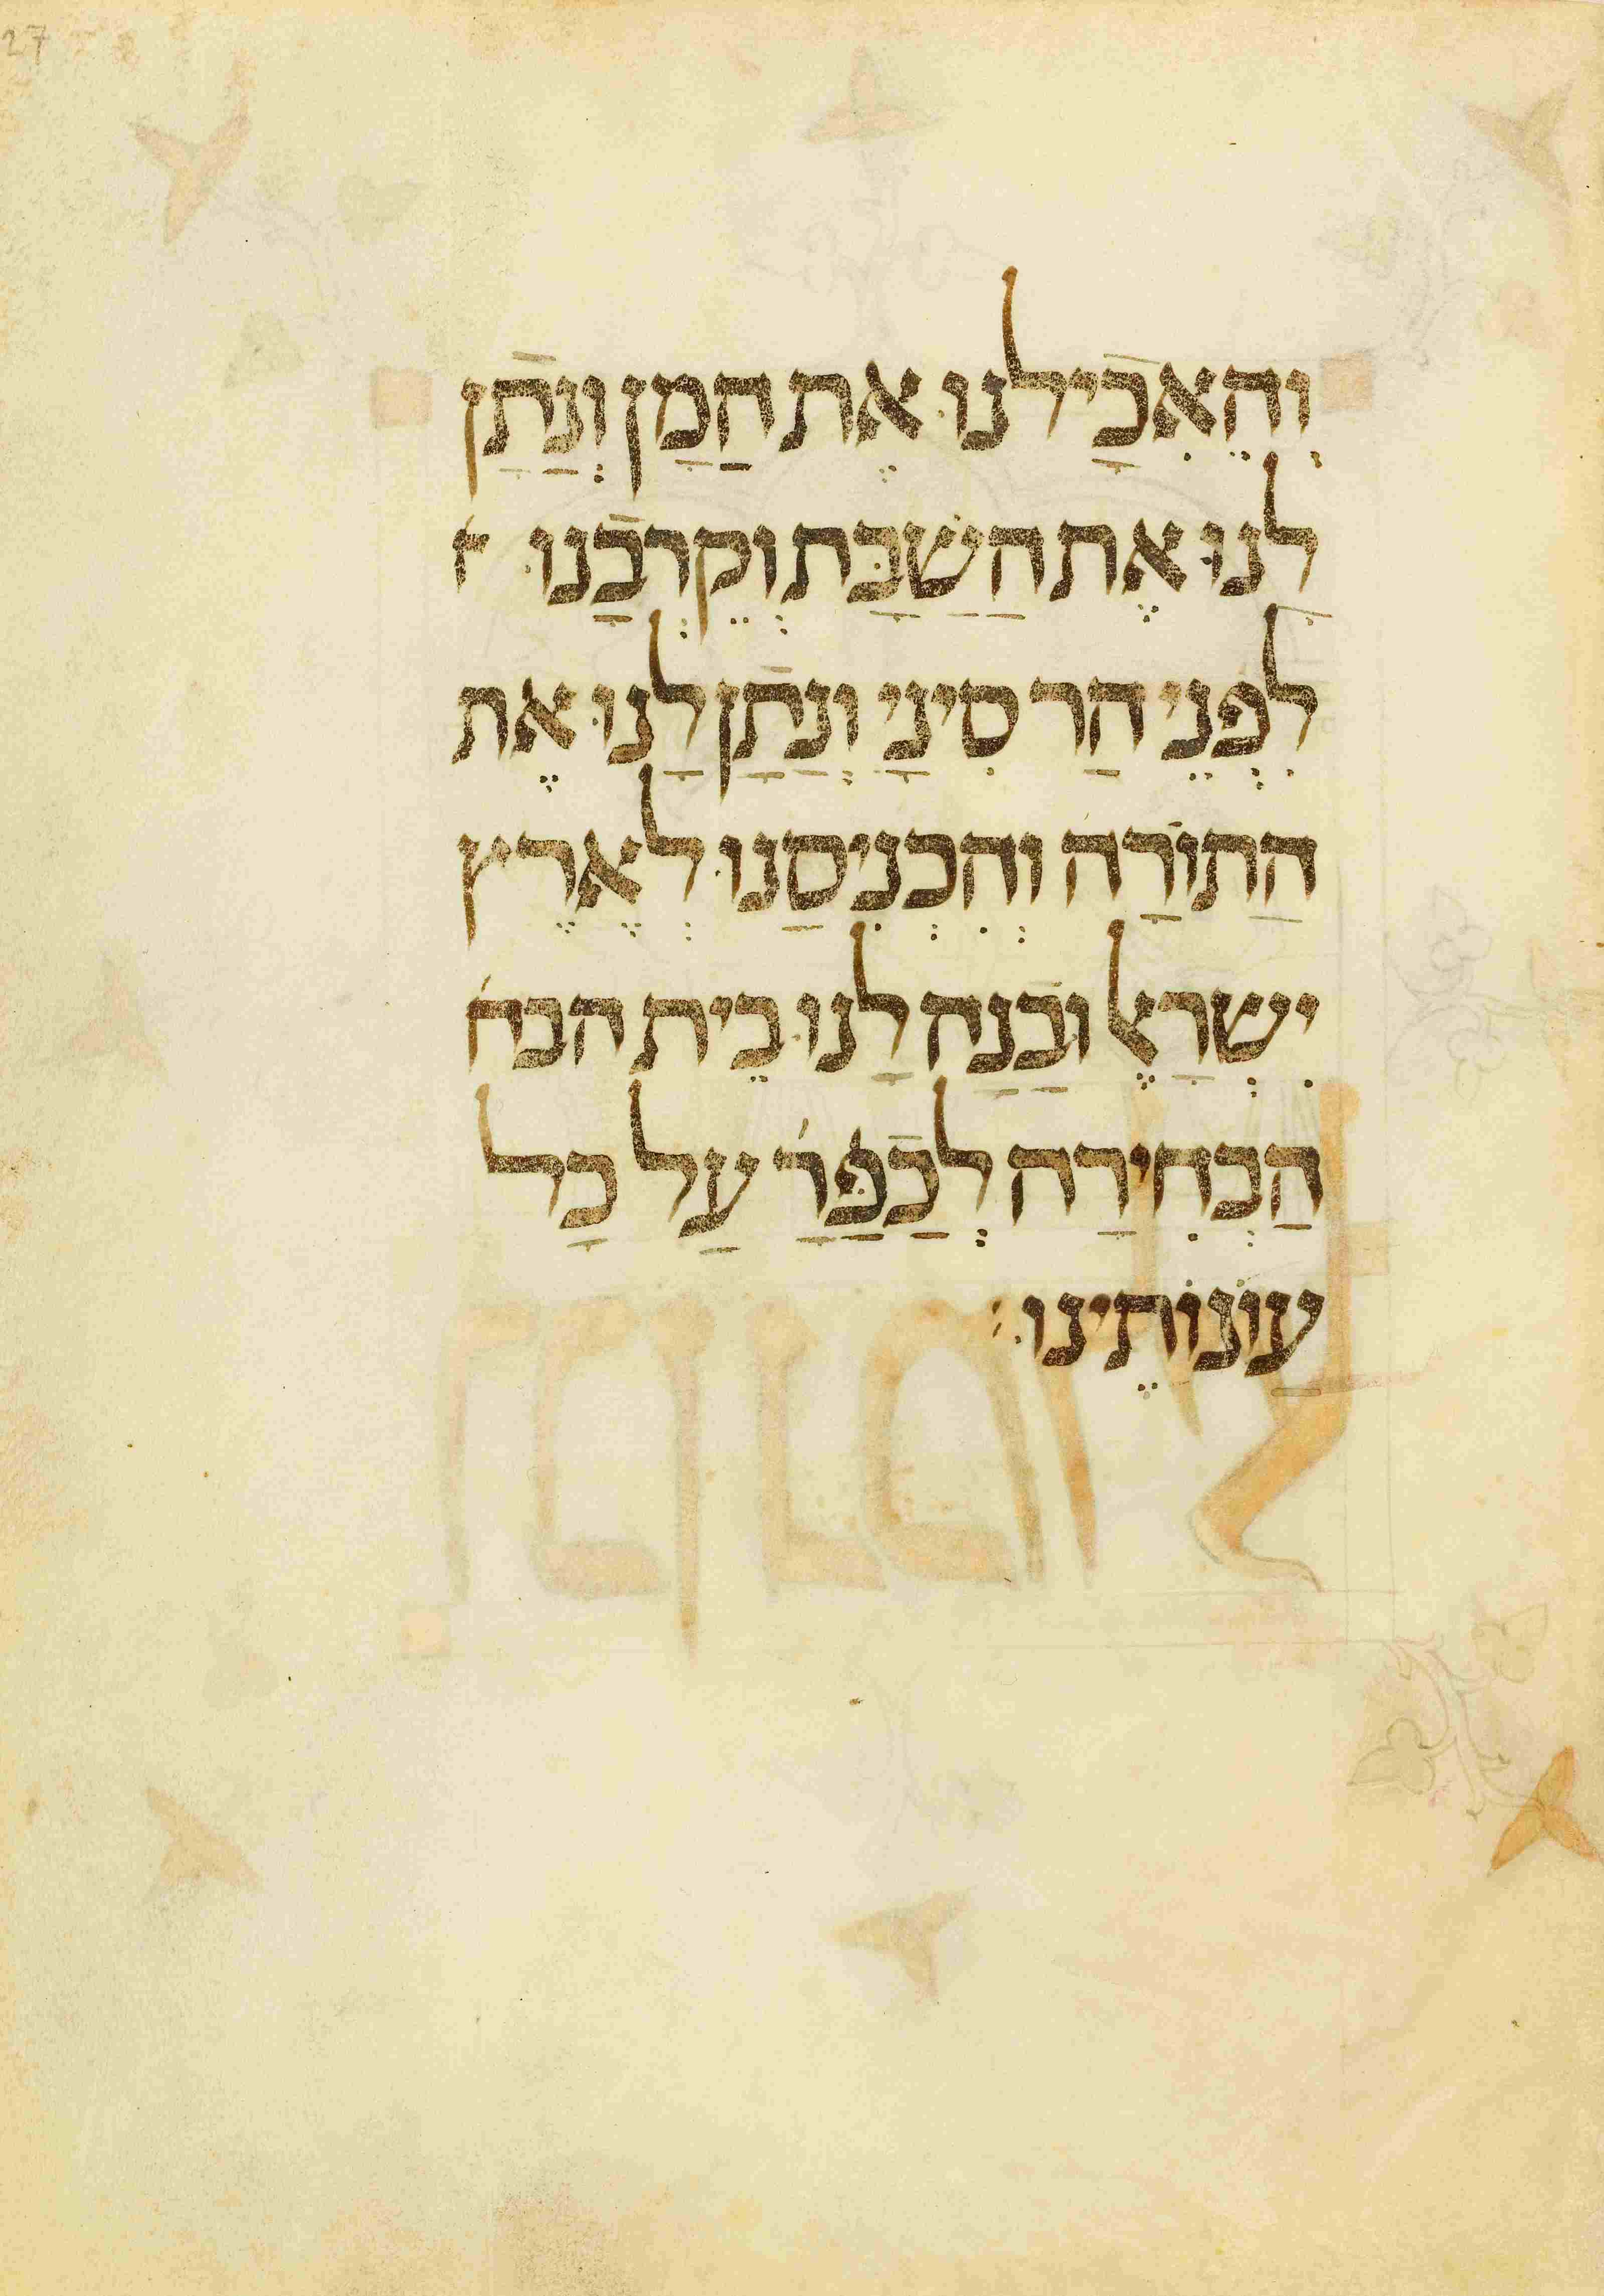 27
וְהֶאֱכִילָנוּ אֶת הַמָן וְנָתַן
לָנוּ אֶת הַשַׁבָּת וְקֵרְבָנוּ
לִפְנֵי הַר סִינָי וְנָתַן לָנוּ אֶת
הַתוֹרָה וְהִכְנִיסָנוּ לְאֶרֶץ
יִשְׂרָאֵל וּבָנָה לָנוּ בֵית הבח
הַבְּחִירָה לְכַפֵּר עַל כָל
עֲוֹנוֹתֵינוּ׃